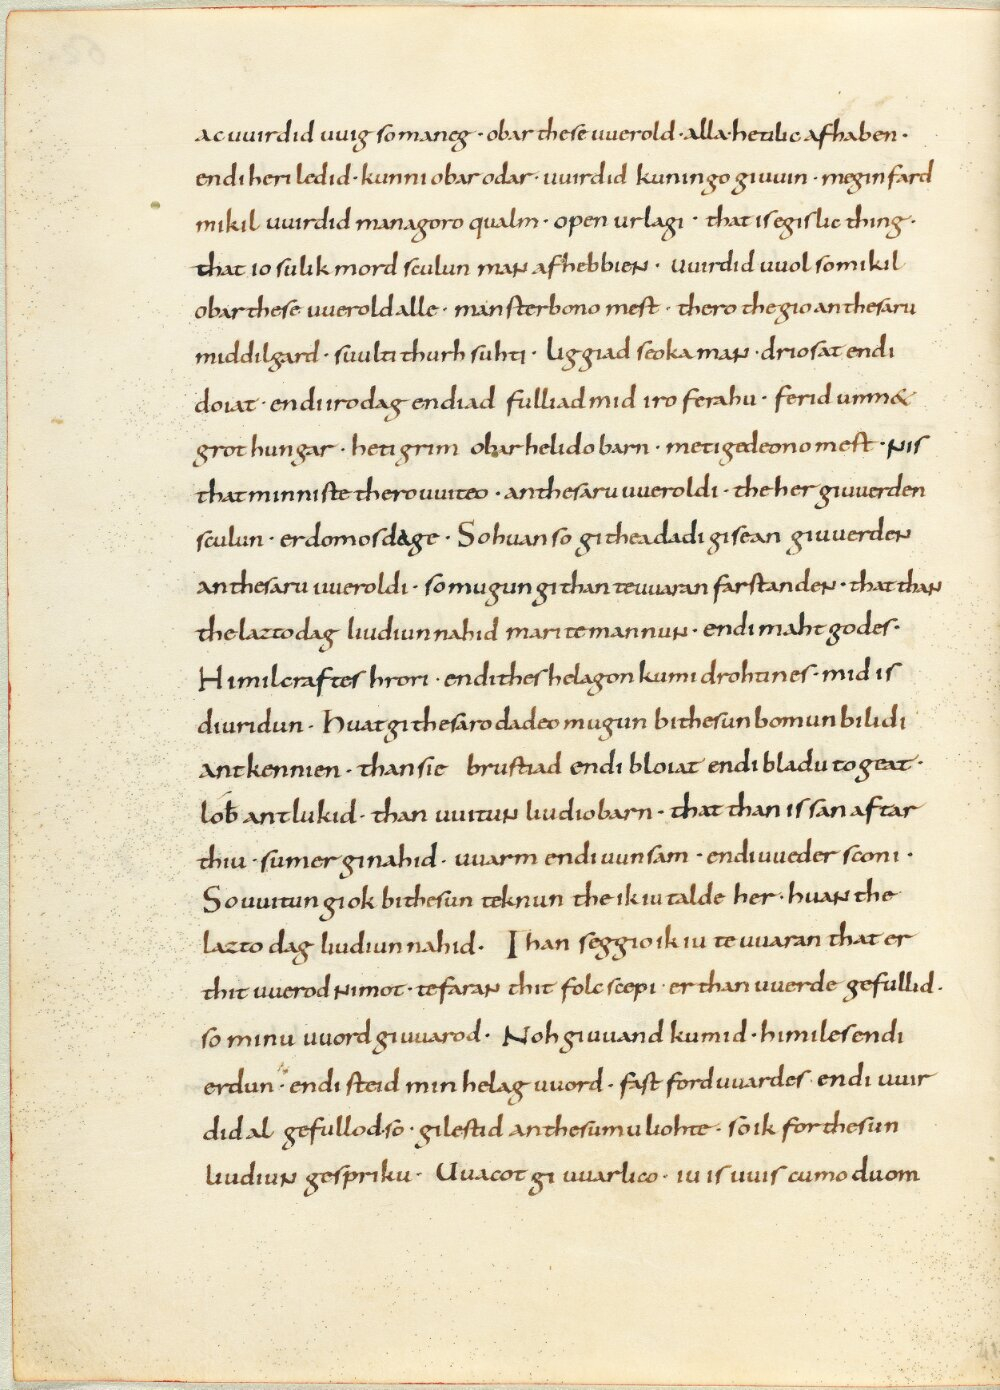 ac uuirdid uuig so maneg · obar these uuerold · alla · hetilic afhaben ·
endi heri ledid · kunni obar odar · uuirdid kuningo giuuin · meginfard
mikil uuirdid managoro qualm · open urlagi · that is egislic thing ·
that io sulik mord sculun man afhebbien · uuirdid uuol so mikil
obar these uuerold alle · mansterbono mest · thero the gio an thesaru
middilgard · suulti thurh suhti · liggiad seoka man · driosat endi
doiat · endi iro dag endiad fulliad mid iro ferahu · ferid unm&
grot hungar · heti grim obar helido barn · metigedeono mest · nis
that minniste thero uuiteo · an thesaru uueroldi · the her giuuerden
sculun · er domos dage · So huan so gi thea dadi gisean giuuerden
an thesaru uueroldi · so mugun gi than te uuaran farstanden · that than
the lazto dag liudiun nahid mari te mannun · endi maht godes ·
Himilcraftes hrori · endi thes helagon kumi drohtines · mid is
diuridun · Huat gi thesaro dadeo mugun bi thesun bomun bilidi
antkennien · than sie brustiad endi bloiat endi bladu togeat ·
loƀ antlukid · than uuitun liudio barn · that than is san aftar
thiu · sumer ginahid · uuarm endi uunsam · endi uueder sconi ·
So uuitun gi ok bi thesun teknun the ik iu talde her · huan the
lazto dag liudiun nahid · Than seggio ik iu te uuaran that er
thit uuerod ni mot · tefaran thit folcscepi · er than uuerde gefullid ·
so minu uuord giuuarod · Noh giuuand kumid · himiles endi
erdun · endi steid min helag uuord · fast forduuardes endi uuir
did al gefullod so · gilestid an thesumu liohte · so ik for thesun
liudiun gespriku · Uuacot gi uuarlico · iu is uuis cumo duom